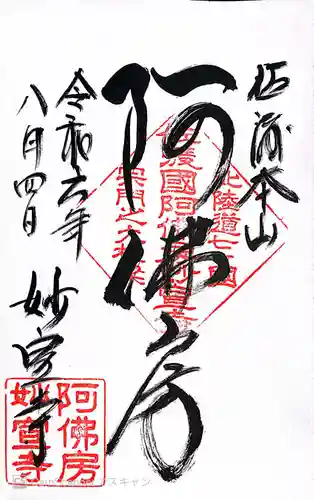 佐渡本山
阿佛房
令和六年
八月四日
妙宣寺
北陸道七ヶ国
佐渡國阿佛房妙宣寺
阿佛房
妙宣寺